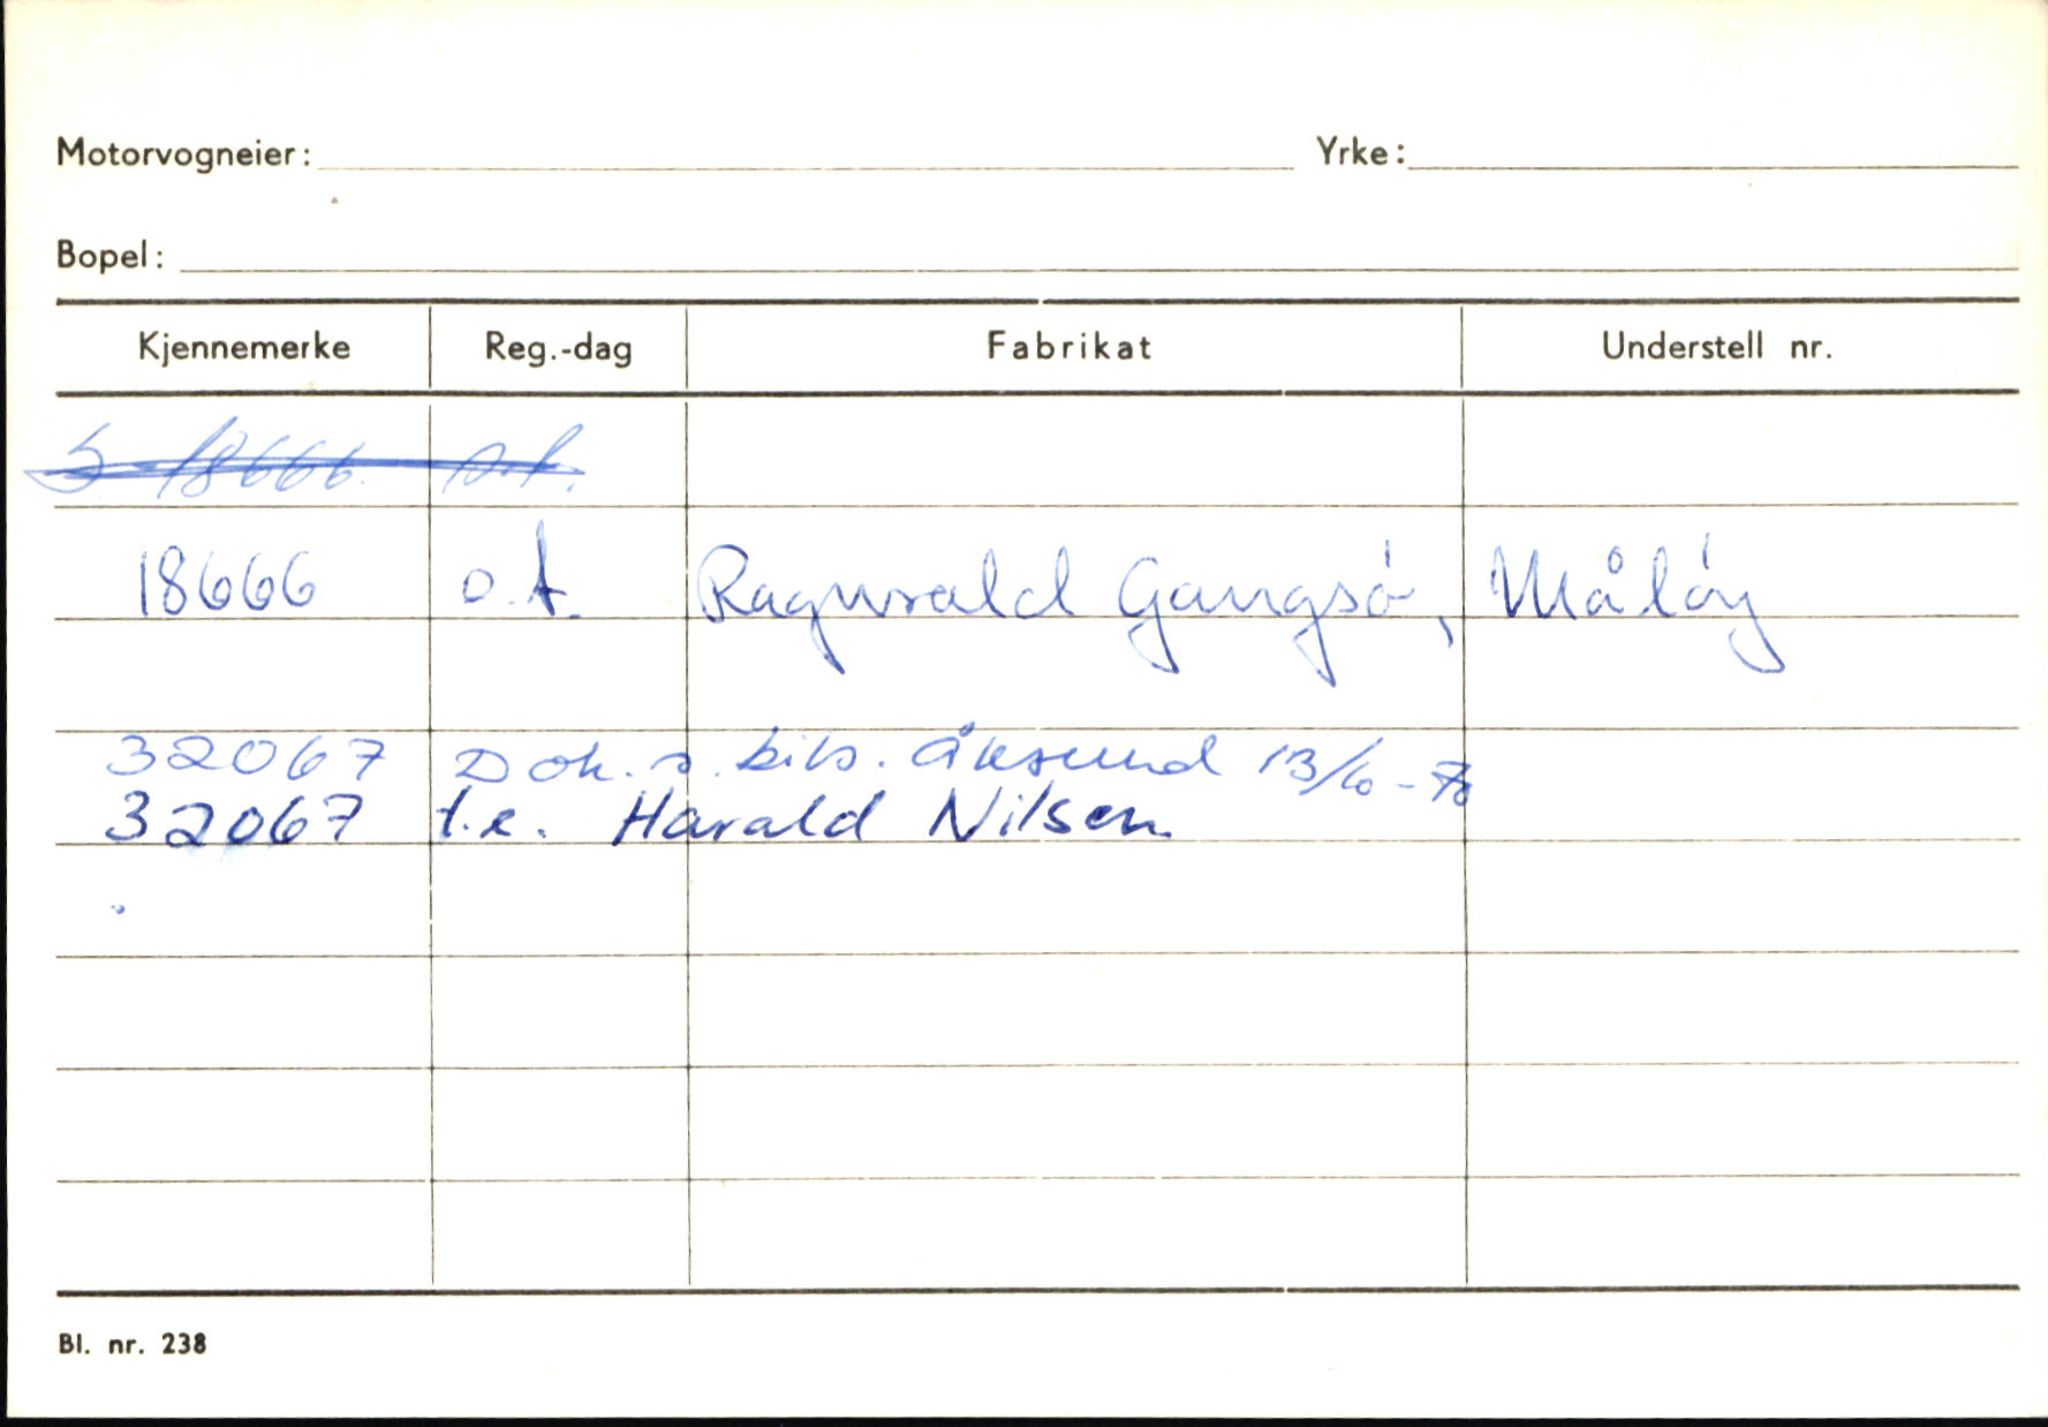 Motorvogneier: Yrke:
Bopel:
Kjennemerke Reg.-dag Fabrikat Understell nr.
S 18666. o.t.
18666 o.t. Ragnvald Gangsó, Målóy
32067 Dok. s. bils. Åksund 13/6-70
32067 t.e. Harald Nilsen
Bl. nr. 238